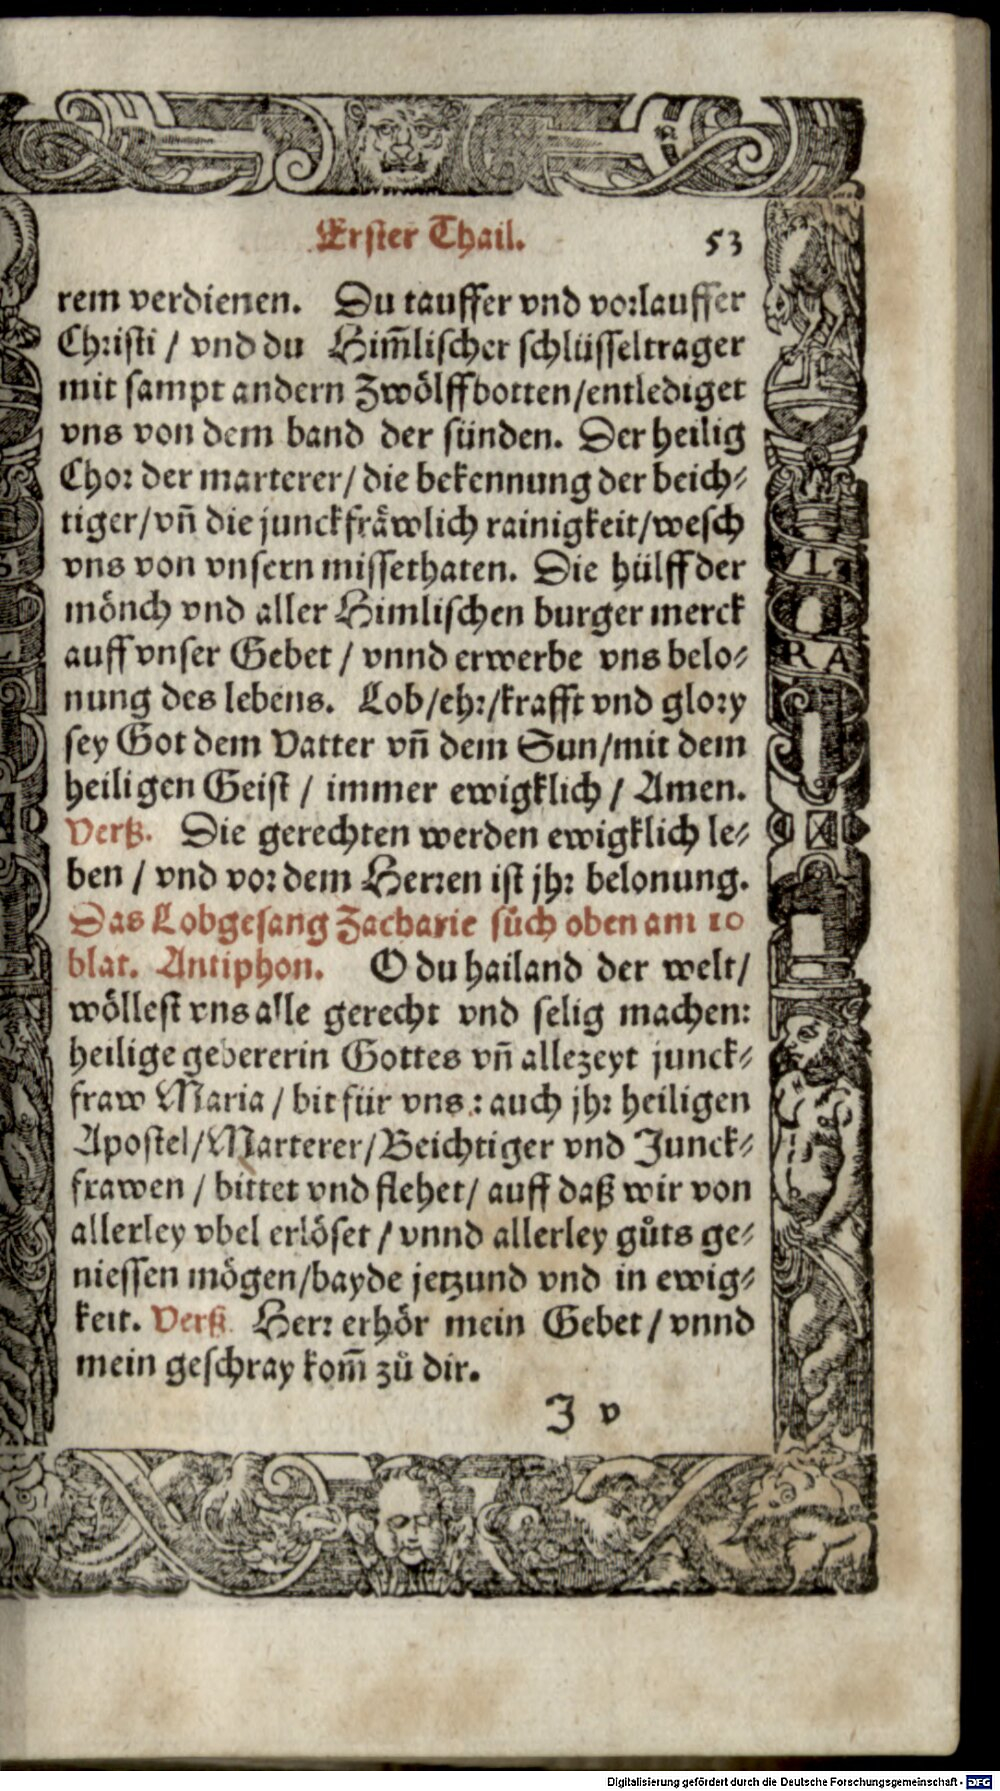 Erster Thail. 53
rem verdienen. Du tauffer vnd vorlauffer
Christi / vnd du Him̃lischer schlüsseltrager
mit sampt andern Zwölffbotten/entlediget
vns von dem band der sünden. Der heilig
Chor der marterer/ die bekennung der beich⸗
tiger/vñ die junckfräwlich rainigkeit/wesch
vns von vnsern missethaten. Die hülff der
mönch vnd aller Himlischen burger merck
auff vnser Gebet / vnnd erwerbe vns belo⸗
nung des lebens. Lob/ehr/krafft vnd glory
sey Got dem Vatter vñ dem Sun/mit dem
heiligen Geist / immer ewigklich / Amen.
Verß. Die gerechten werden ewigklich le⸗
ben / vnd vor dem Herren ist jhr belonung.
Das Lobgesang Zacharie sůch oben am 10
blat. Antiphon. O du hailand der welt/
wöllest vns alle gerecht vnd selig machen:
heilige gebererin Gottes vñ allezeyt junck⸗
fraw Maria / bit für vns : auch jhr heiligen
Apostel/Marterer/Beichtiger vnd Junck⸗
frawen / bittet vnd flehet/ auff daß wir von
allerley vbel erlöset / vnnd allerley gůts ge⸗
niessen mögen/bayde jetzund vnd in ewig⸗
keit. Verß Herr erhör mein Gebet / vnnd
mein geschray kom̃ zů dir.
J v
L
RA
Digitalisierung gefördert durch die Deutsche Forschungsgemeinschaft - DFG